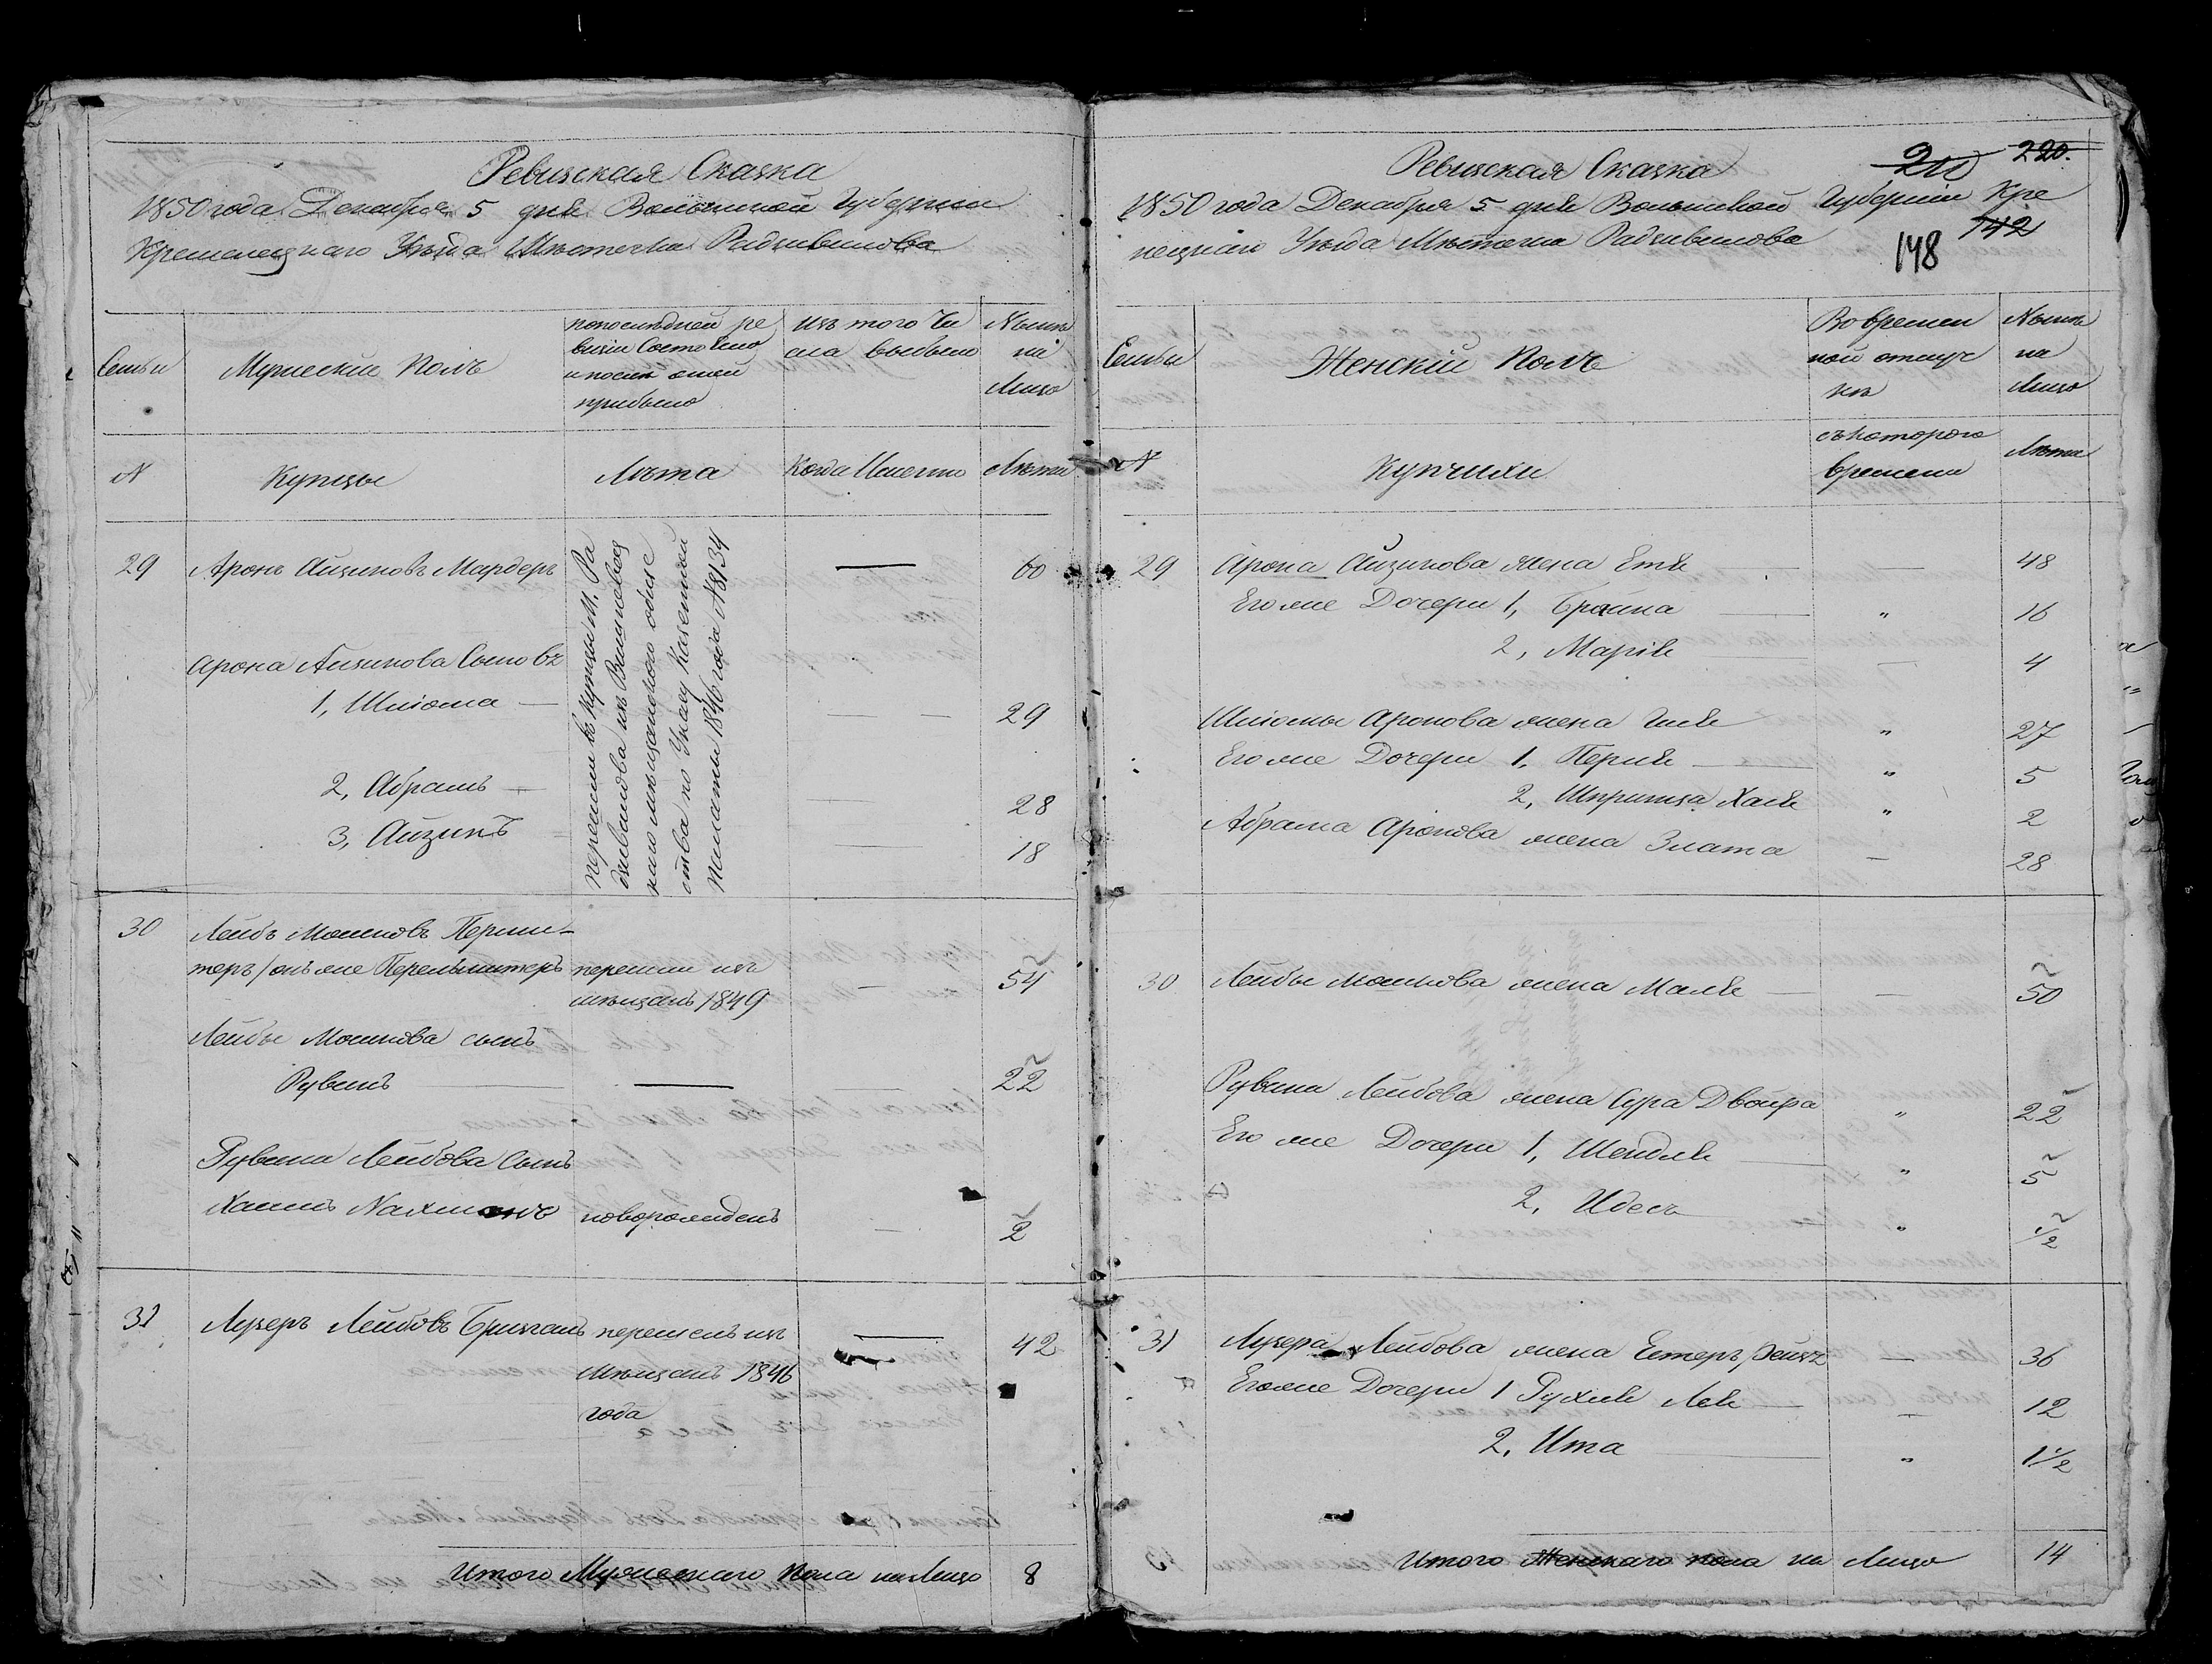 Ревизская Сказка
1850 года Декабря 5 дня Волынской Губернии
Кременецкаго Уѣзда Мѣстечка Радзивилова
Семьи
Мужескій Полъ
по послѣдней ре
визіи Состояло
и после оной
прибыло
Изъ того Чи
сла выбыло
Нынѣ
на
Лицо
N
Купцы
Лѣта
Когда Именно
Лѣта
29 Аронъ Айзиковъ Мардеръ — 60
перешли въ купцы М. Ра
дзивилова изъ Вишневец
каго мѣщанского обще
ства по Указу Казенной
Палаты 1846 года N 8134
Арона Айзикова Сыновъ
1, Шлiома — — — 29
2, Абрамъ — — 28
3, Айзикъ 18
30 Лейбъ Мошковъ Перли-
теръ / онъ же Перельмитеръ перешли изъ — 54
мѣщанъ 1849
Лейбы Мошкова сынъ
Рувинъ — — 22
Рувина Лейбова Сынъ
Хаимъ Нахманъ новорожденъ — 2
31 Лузеръ Лейбовъ Бризганъ перешелъ изъ — 42
мѣщанъ 1846
года
Итого Мужескаго Пола на Лицо 8
Ревизская Сказка 210 220.
1850 года Декабря 5 дня Волынской Губерніи Кре
нецкаго Уѣзда Мѣстечка Радзивилова 148 142
Семьи
Женскій Полъ
Во времен
ной отлуч
кѣ
Нынѣ
на
Лицо
N
Купчихи
съ котораго
времени
Лѣта
29 Арона Айзикова жена Етѣ — — 48
Его же Дочери 1, Брайна — " 16
2, Маріѣ — — 4
Шлiомы Аронова жена Гитѣ " 27
Его же Дочери 1, Перлѣ — " 5
2, Шпринца Хаѣ " 2
Абрама Аронова жена Злата — 28
30 Лейбы Мошкова жена Малѣ — — 50
Рувина Лейбова жена Сура Двойра " 22
Его же Дочери 1, Шейдлѣ — " 5
2, Идесъ " 1/2
31 Лузера Лейбова жена Естеръ Рейзъ — 36
Его же Дочери 1 Рухлѣ Леѣ — — 12
2, Ита — " 1 1/2
Итого Женскаго пола на Лицо 14